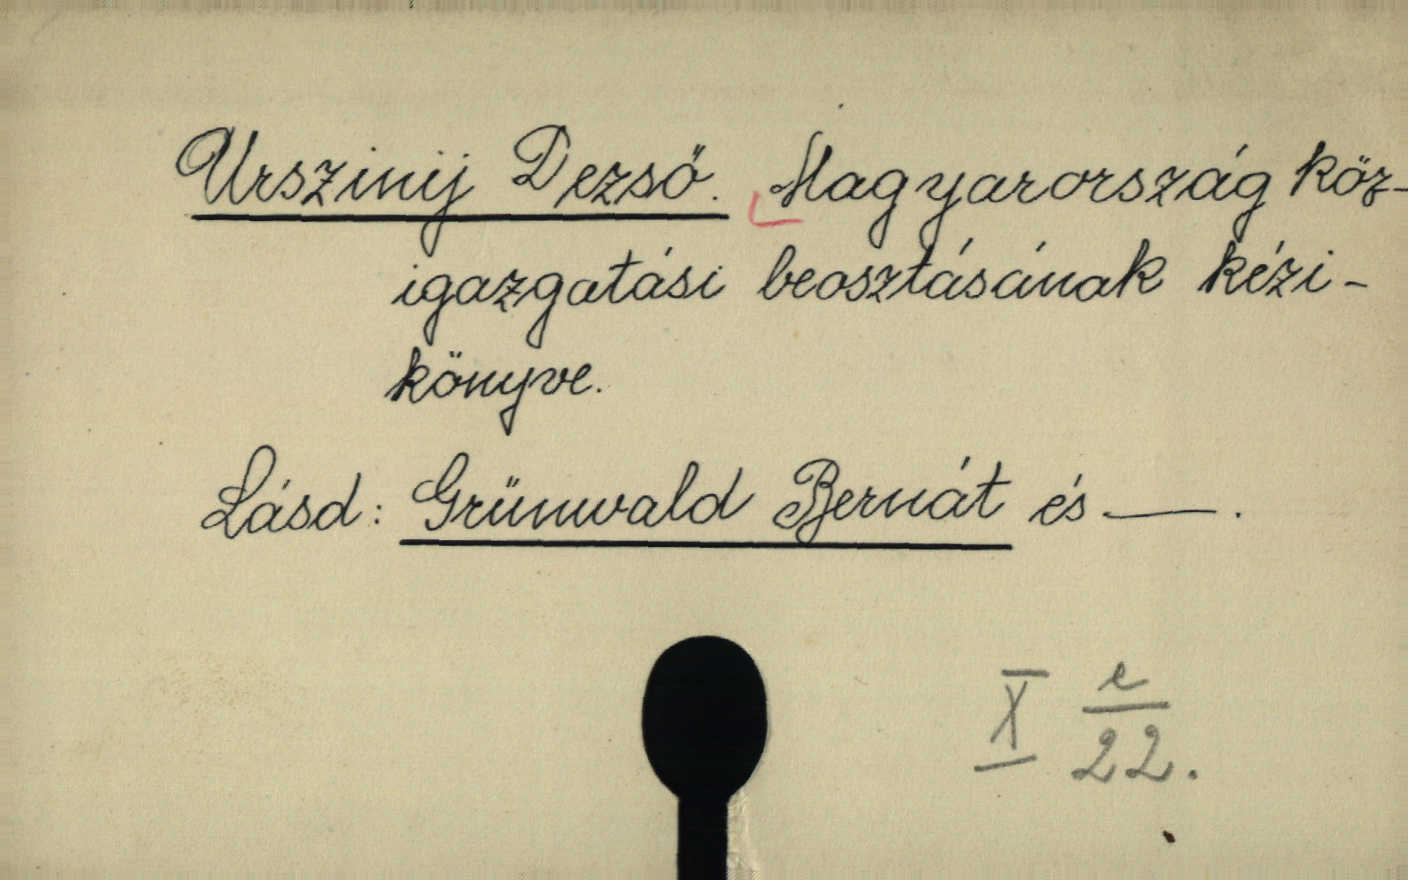 Urszinij Dezső. Magyarország köz-
igazgatási beosztásának kézi-
könyve.
Lásd: Grünwald Bernát és —.
X e/22.